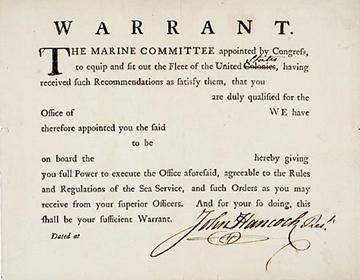 WARRANT.
THE MARINE COMMITTEE appointed by Congress,
to equip and fit out the Fleet of the United Colonies, States having
received such Recommendations as satisfy them, that you
are duly qualified for the
Office of WE have
therefore appointed you the said
to be
on board the hereby giving
you full Power to execute the Office aforesaid, agreeable to the Rules
and Regulations of the Sea Service, and such Orders as you may
receive from your superior Officers. And for your so doing, this
shall be your sufficient Warrant.
John Hancock Presᵗ
Dated at